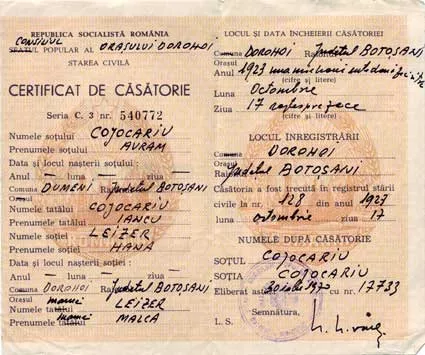 REPUBLICA SOCIALISTĂ ROMÂNIA
CONSILIUL
SFATUL POPULAR AL ORAȘULUI DOROHOI
STAREA CIVILĂ
CERTIFICAT DE CĂSĂTORIE
Seria C. 3 nr. 540772
Numele soțului COJOCARIU
Prenumele soțului AVRAM
Data și locul nașterii soțului :
Anul — luna — ziua —
Comuna DUMENI Județul BOTOȘANI
Orașul
Numele tatălui COJOCARIU
Prenumele tatălui IANCU
Numele soției LEIZER
Prenumele soției HANA
Data și locul nașterii soției :
Anul — luna — ziua —
Comuna DOROHOI Județul BOTOȘANI
Orașul
Numele tatălui LEIZER
Prenumele tatălui mamei MALCA
LOCUL ȘI DATA ÎNCHEIERII CĂSĂTORIEI
Comuna DOROHOI Județul BOTOȘANI
Orașul
Anul 1923 una mie nouă sute
(cifre și litere)
Luna Octombrie
Ziua 17
(cifre și litere)
LOCUL ÎNREGISTRĂRII
Comuna DOROHOI
Orașul
Județul BOTOȘANI
Căsătoria a fost trecută în registrul stării
civile la nr. 128 din anul 1923
luna octombrie ziua 17
NUMELE DUPĂ CĂSĂTORIE
SOȚUL COJOCARIU
SOȚIA COJOCARIU
Eliberat astăzi 30 iulie 1970 cu nr. 17733
Semnătura,
L. S.